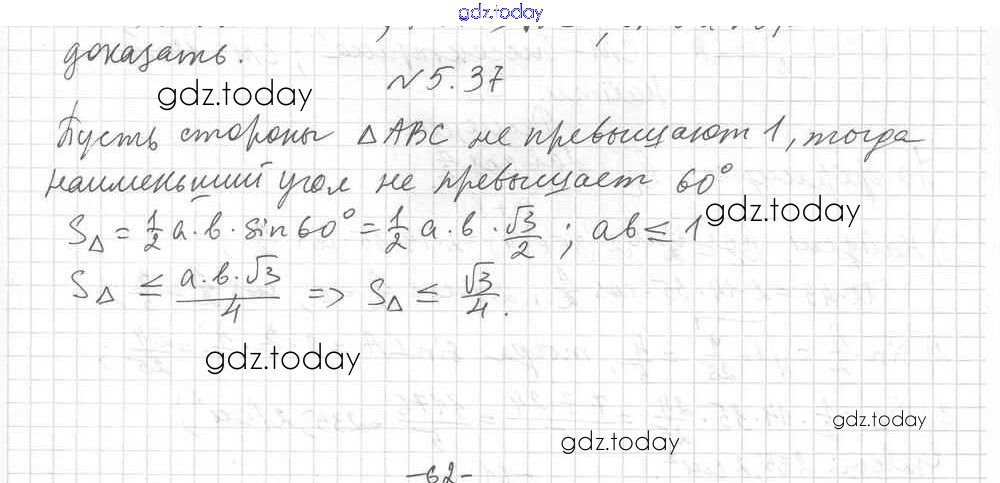 gdz.today
доказать.
№ 5.37
gdz.today
Пусть стороны △ABC не превышают 1, тогда
наименьший угол не превышает 60°
gdz.today
S△ = 1/2 a·b·sin60° = 1/2 a·b·√3/2 ; ab ≤ 1
S△ ≤ a·b·√3/4 => S△ ≤ √3/4.
gdz.today
gdz.today
gdz.today
-62-